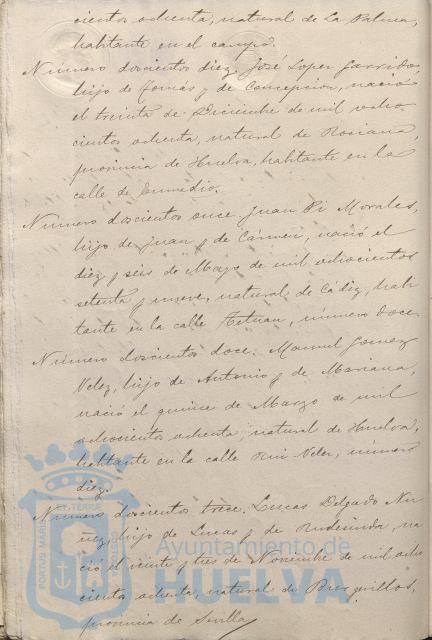 cientos ochenta, natural de La Palma,
habitante en el campo.
Número doscientos diez. José Lopez Garrido,
hijo de Tomás y de Concepcion, nació
el treinta de Diciembre de mil ocho-
cientos ochenta, natural de Rociana,
provincia de Huelva, habitante en la
calle de Enmedio.
Número doscientos once. Juan Pi Morales,
hijo de Juan y de Cármen, nació el
diez y seis de Mayo de mil ochocientos
setenta y nueve, natural de Cádiz, habi
tante en la calle Tetuan, número doce.
Número doscientos doce. Manuel Gomez
Velez, hijo de Antonio y de Mariana,
nació el quince de Marzo de mil
ochocientos ochenta, natural de Huelva,
habitante en la calle Rui Velez, número
diez.
Número doscientos trece. Lucas Delgado Nu
ñez, hijo de Lucas y de Rudesinda, na
ció el veinte y tres de Noviembre de mil ocho
cientos ochenta, natural de Burguillos,
provincia de Sevilla
Ayuntamiento de
HUELVA